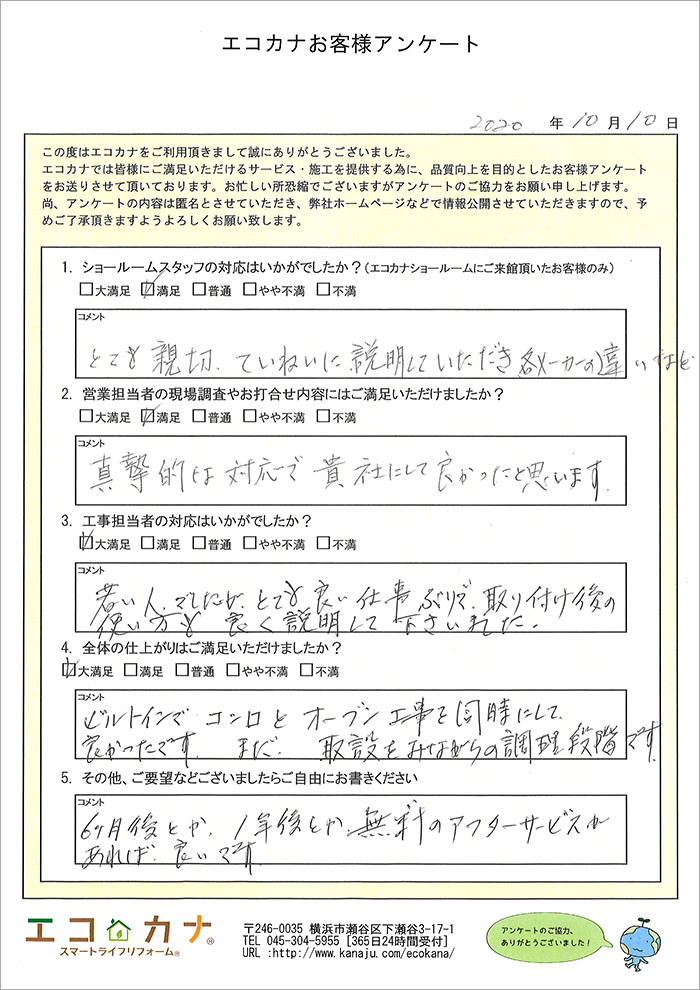 エコカナお客様アンケート
2020 年 10 月 10 日
この度はエコカナをご利用頂きまして誠にありがとうございました。
エコカナでは皆様にご満足いただけるサービス・施工を提供する為に、品質向上を目的としたお客様アンケート
をお送りさせて頂いております。お忙しい所恐縮でございますがアンケートのご協力をお願い申し上げます。
尚、アンケートの内容は匿名とさせていただき、弊社ホームページなどで情報公開させていただきますので、予
めご了承頂きますようよろしくお願い致します。
1. ショールームスタッフの対応はいかがでしたか？(エコカナショールームにご来館頂いたお客様のみ)
□大満足 ☑満足 □普通 □やや不満 □不満
コメント
とても親切、ていねいに説明していただき各メーカーの違いなど
2. 営業担当者の現場調査やお打合せ内容にはご満足いただけましたか？
□大満足 ☑満足 □普通 □やや不満 □不満
コメント
真摯的な対応で貴社にして良かったと思います。
3. 工事担当者の対応はいかがでしたか？
☑大満足 □満足 □普通 □やや不満 □不満
コメント
若い人でしたが、とても良い仕事ぶりで、取り付け後の
使い方も良く説明して下さいました。
4. 全体の仕上がりはご満足いただけましたか？
☑大満足 □満足 □普通 □やや不満 □不満
コメント
ビルトインで コンロと オーブン工事を同時にして、
良かったです。 まだ、 取設をみながらの調理段階です。
5. その他、ご要望などございましたらご自由にお書きください
コメント
6ヶ月後とか、1年後とか、無料のアフターサービスが
あれば、良いです。
エコカナ®
スマートライフリフォーム®
〒246-0035 横浜市瀬谷区下瀬谷3-17-1
TEL 045-304-5955 [365日24時間受付]
URL :http://www.kanaju.com/ecokana/
アンケートのご協力、
ありがとうございました！